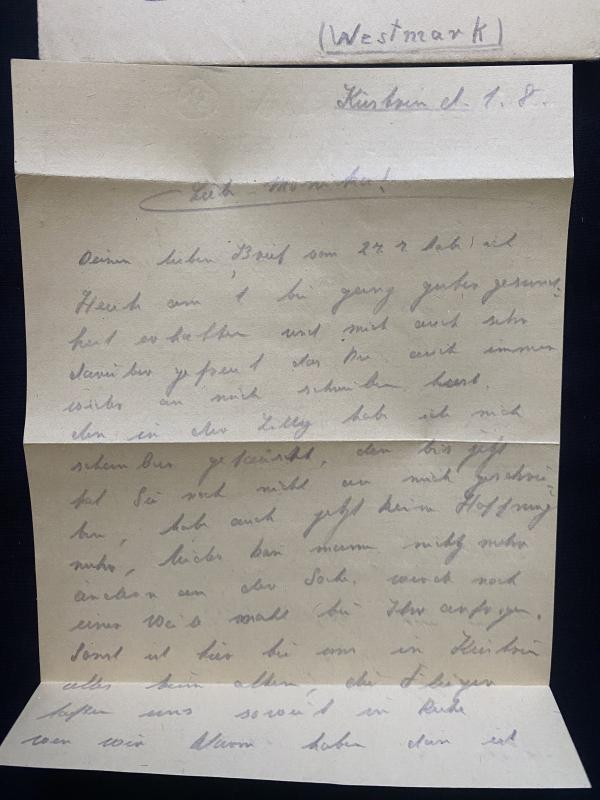 (Westmark)
Küstrin d. 1. 8.
Lieb Monika!
Deinen lieben Brief vom 27. 7 hab ich
Heute am 1 bei ganz guter gesund-
heit erhalten und mich auch sehr
darüber gefreut das Du auch immer
wieder an mich schreiben tust.
den in der Lilly hab ich mich
scheinbar getäuscht, den bis jetzt
hat Sie noch nicht an mich geschrie-
ben, hab auch jetzt keine Hoffnung
mehr, leider kan mann nichts mehr
ändern an der Sache. werde noch
einmal bei Ihr anfragen.
Sonst ist hier bei uns in Küstrin
alles beim alten, die Flieger
laßen uns soweit in Ruhe
wen wir Alarm haben dan ist